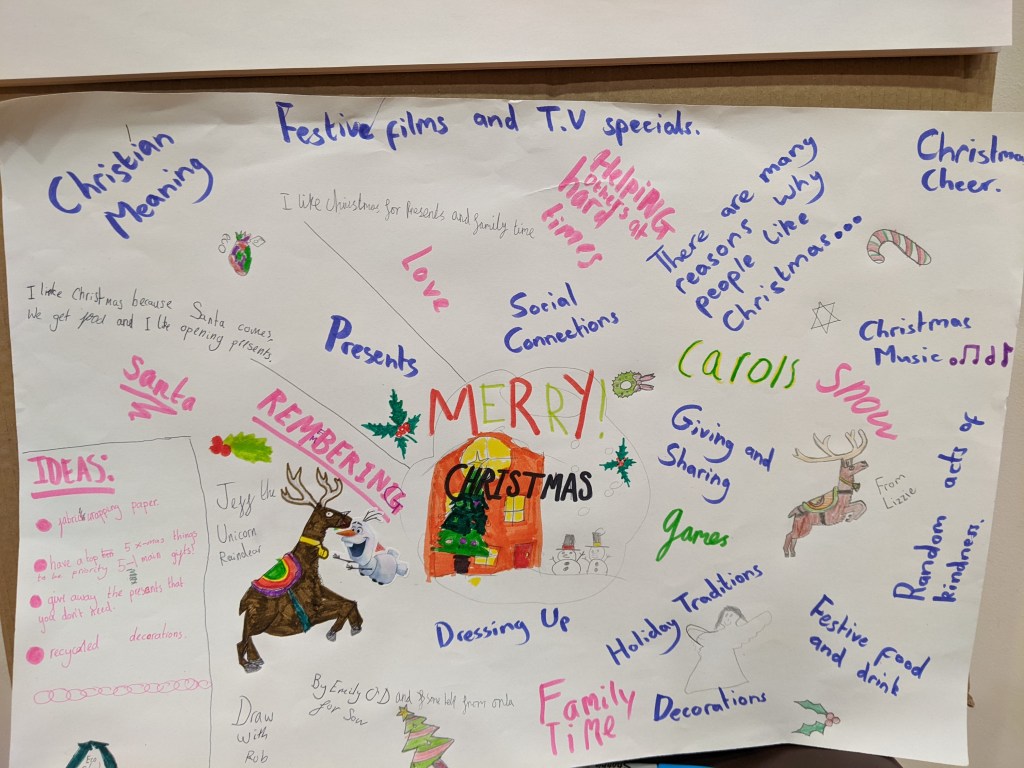 Festive films and T.V specials.
Christian
Meaning
Christmas
Cheer.
HELPING
Other's at
hard
times
There are many
reasons why
people like
Christmas...
I like Christmas for presents and family time
Love
Social
Connections
I like Christmas because Santa comes,
We get food and I like opening presents.
Presents
Christmas
Music
Carols
Snow
Santa
REMBERING
MERRY!
CHRISTMAS
Giving and
Sharing
From
Lizzie
Random acts of
kindness.
IDEAS:
fabric wrapping paper
have a top 5 x-mas things
to be priority 5 main gifts!
give away the presents that
you don't need.
recycated decorations.
Jezz the
Unicorn
Raindear
games
Dressing Up
Holiday Traditions
Festive food
and drink
Family
TIME
Decorations
By Emily O'D and
Draw
with
Rob